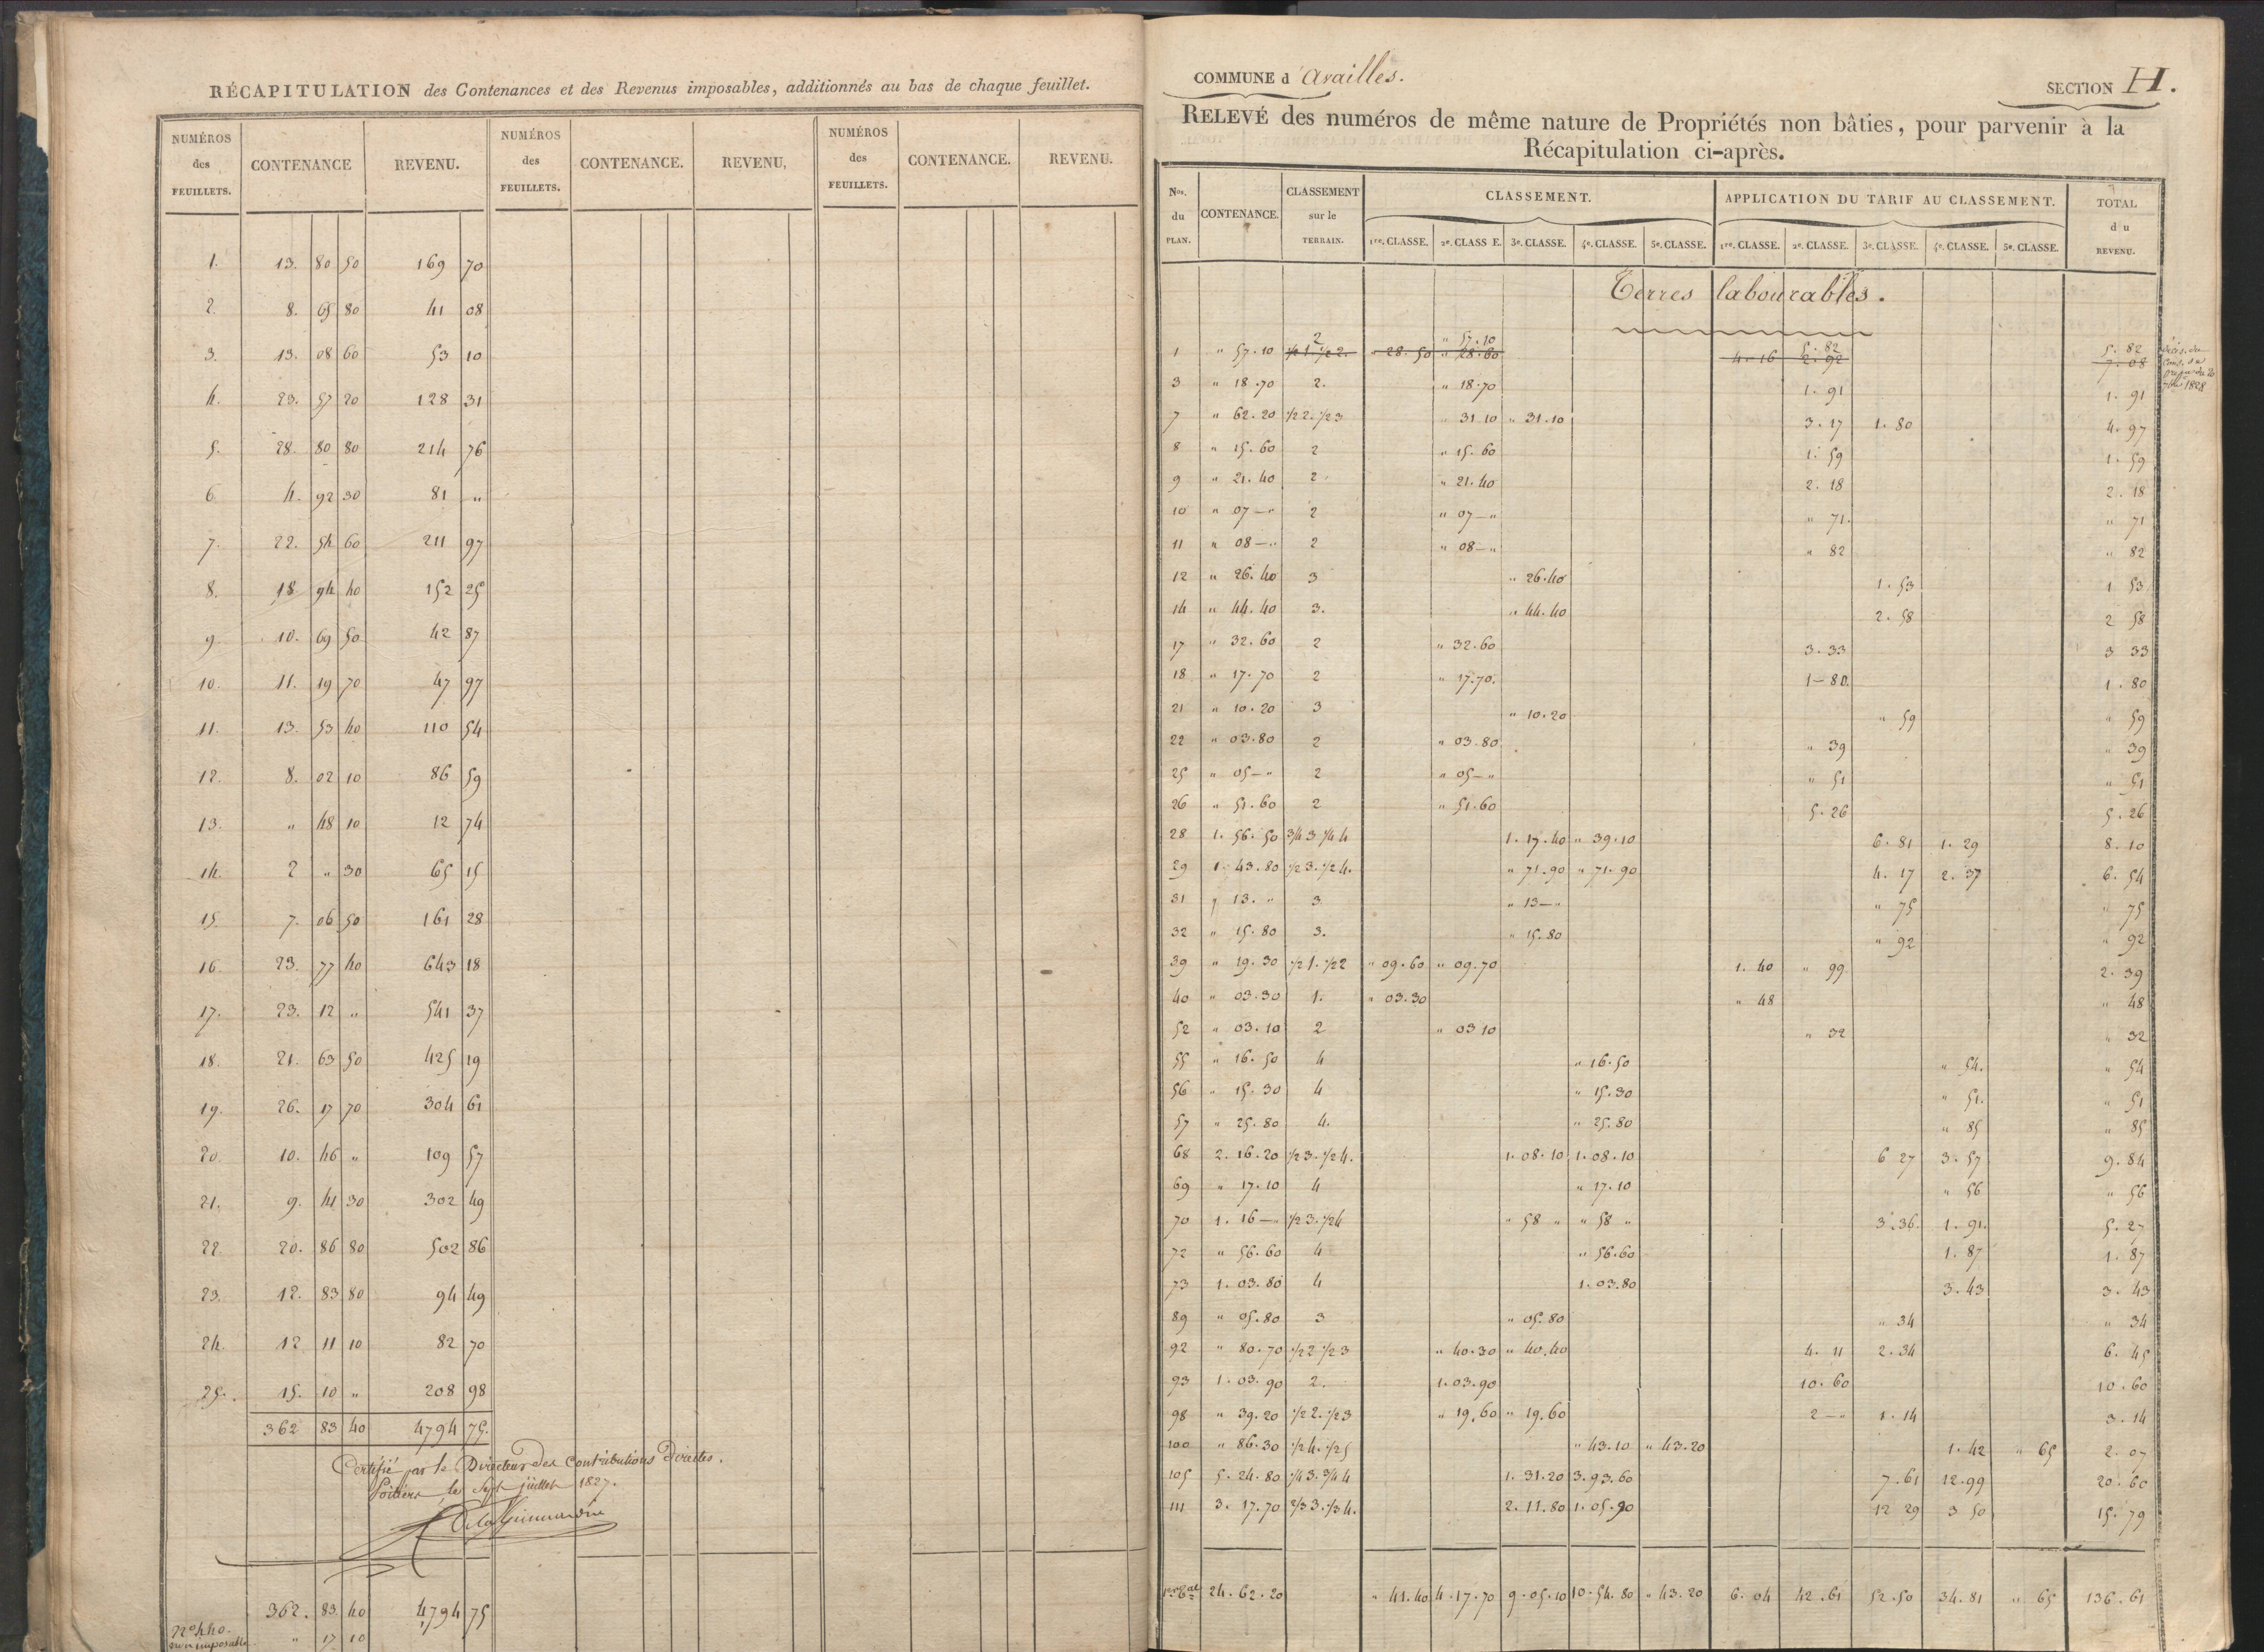 RÉCAPITULATION des Contenances et des Revenus imposables, additionnés au bas de chaque feuillet.
NUMÉROS des FEUILLETS. CONTENANCE REVENU. NUMÉROS des FEUILLETS. CONTENANCE. REVENU, NUMÉROS des FEUILLETS. CONTENANCE. REVENU.
1. 13. 80 50 169 70
2. 8. 65 80 41 08
3. 13. 08 60 53 10
4. 23. 57 20 128 31
5. 28. 80 80 214 76
6. 4. 92 30 81 "
7. 22. 54 60 211 97
8. 18 94 40 152 25
9. 10. 69 50 42 87
10. 11. 19 70 47 97
11. 13. 53 40 110 54
12. 8. 02 10 86 59
13. " 48 10 12 74
14. 2 " 30 65 15
15. 7. 06 50 161 28
16. 23. 77 40 643 18
17. 23. 12 " 541 37
18. 21. 63 50 425 19
19. 26. 17 70 304 61
20. 10. 46 " 109 57
21. 9. 41 30 302 49
22. 20. 86 80 502 86
23. 12. 83 80 94 49
24. 12 11 10 82 70
25. 15. 10 " 208 98
362 83 40 4794 75.
Certifié par le Directeur des Contributions Directes.
Poitiers le Sept juillet 1827.
362. 83. 40 4794 75
No 440.
non imposable " 17 10
COMMUNE d'Availles.
SECTION H.
RELEVÉ des numéros de même nature de Propriétés non bâties, pour parvenir à la
Récapitulation ci-après.
Nos. du PLAN. CONTENANCE. CLASSEMENT sur le TERRAIN. CLASSEMENT. APPLICATION DU TARIF AU CLASSEMENT. TOTAL du REVENU.
1re. CLASSE. 2e. CLASSE. 3e. CLASSE. 4e. CLASSE. 5e. CLASSE. 1re. CLASSE. 2e. CLASSE. 3e. CLASSE. 4e. CLASSE. 5e. CLASSE.
Terres labourables.
2 " 57.10 5. 82 5. 82
1 " 57.10 1/2 1. 1/2 2. " 28. 50 " 28.60 4. 16 2. 92 7. 08
3 " 18.70 2. " 18.70 1. 91 1. 91
7 " 62.20 1/2 2. 1/2 3 " 31 10 " 31.10 3. 17 1. 80 4. 97
8 " 15.60 2 " 15. 60 1. 59 1. 59
9 " 21. 40 2 " 21.40 2. 18 2. 18
10 " 07 — " 2 " 07 — " " 71. " 71
11 " 08 — " 2 " 08 — " " 82 " 82
12 " 26. 40 3 " 26.40 1. 53 1 53
14 " 44. 40 3. " 44.40 2. 58 2 58
17 " 32.60 2 " 32.60 3. 33 3 33
18 " 17. 70 2 " 17.70. 1 — 80. 1. 80
21 " 10. 20 3 " 10.20 " 59 " 59
22 " 03.80 2 " 03.80 " 39 " 39
25 " 05 — " 2 " 05 — " " 51 " 51
26 " 51.60 2 " 51.60 5. 26 5. 26
28 1. 56. 50 3/4 3 1/4 4 1. 17.40 " 39.10 6. 81 1. 29 8. 10
29 1. 43.80 1/2 3. 1/2 4. " 71.90 " 71. 90 4. 17 2. 37 6. 54
31 " 13. " 3 " 13 — " " 75 " 75
32 " 15. 80 3. " 15. 80 " 92 " 92
39 " 19. 30 1/2 1. 1/2 2 " 09.60 " 09.70 1. 40 " 99 2. 39
40 " 03.30 1. " 03.30 " 48 " 48
52 " 03. 10 2 " 03 10 " 32 " 32
55 " 16. 50 4 " 16.50 " 54. " 54
56 " 15. 30 4 " 15.30 " 51. " 51
57 " 25. 80 4. " 25.80 " 85 " 85
68 2. 16.20 1/2 3. 1/2 4. 1. 08.10 1. 08.10 6 27 3. 57 9. 84
69 " 17.10 4 " 17.10 " 56 " 56
70 1. 16 — " 1/2 3. 1/2 4 " 58 " " 58 " 3. 36. 1. 91. 5. 27
72 " 56.60 4 " 56.60 1. 87 1. 87
73 1. 03.80 4 1. 03.80 3. 43 3. 43
89 " 05.80 3 " 05.80 " 34 " 34
92 " 80.70 1/2 2 1/2 3 " 40.30 " 40.40 4. 11 2. 34 6. 45
93 1. 03. 90 2. 1. 03.90 10. 60 10. 60
98 " 39. 20 1/2 2. 1/2 3 " 19.60 " 19.60 2 — " 1. 14 3. 14
100 " 86.30 1/2 4. 1/2 5 " 43.10 " 43.20 1. 42 " 65 2. 07
105 5. 24. 80 1/4 3. 3/4 4 1. 31.20 3.93.60 7. 61 12.99 20. 60
111 3. 17.70 2/3 3. 1/3 4. 2. 11.80 1. 05.90 12 29 3 50 15. 79
24. 62. 20 " 41.40 4.17.70 9.05.10 10.54.80 " 43.20 6. 04 42. 61 52. 50 34. 81 " 65 136. 61